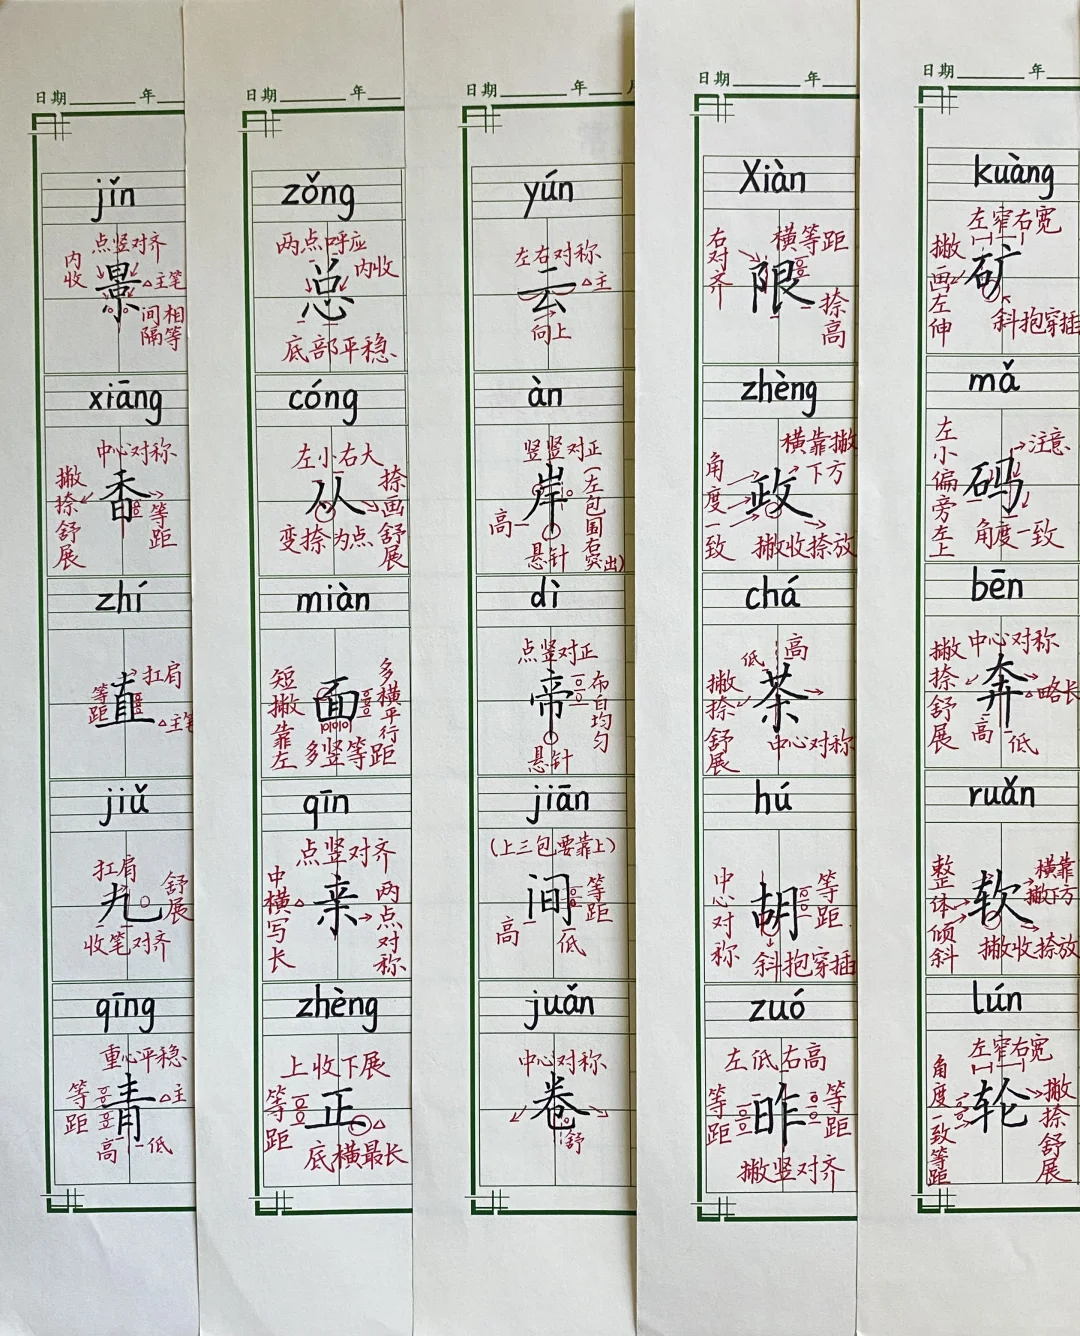 日期 年
jǐn
点竖对齐
内收
景
△主笔
间隔相等
xiāng
中心对称
撇捺舒展
香
等距
zhí
扛肩
等距
直
△主笔
jiǔ
扛肩
丸
舒展
收笔对齐
qīng
重心平稳
等距
青
△主
高
低
日期 年
zǒng
两点呼应
内收
总
底部平稳
cóng
左小右大
从
捺画舒展
变捺为点
miàn
短撇靠左
面
多横平行
多竖等距
qīn
点竖对齐
中横写长
亲
两点对称
zhèng
上收下展
等距
正
底横最长
日期 年 月
yún
左右对称
云
△主
向上
àn
竖竖对正
岸
(左包围右突出)
高
悬针
dì
点竖对正
帝
布白均匀
悬针
jiān
(上三包要靠上)
间
等距
高
低
juǎn
中心对称
卷
舒
日期 年
Xiàn
右对齐
横等距
限
捺高
zhèng
横靠撇下方
角度一致
政
撇收捺放
chá
低
高
撇捺舒展
茶
中心对称
hú
中心对称
胡
等距
斜抱穿插
zuó
左低右高
等距
昨
等距
撇竖对齐
日期 年
kuàng
左窄右宽
撇画左伸
矿
斜抱穿插
mǎ
左小偏旁左上
注意
码
角度一致
bēn
中心对称
撇捺舒展
奔
略长
高
低
ruǎn
整体倾斜
软
横靠撇下方
撇收捺放
lún
左窄右宽
角度一致等距
轮
撇捺舒展